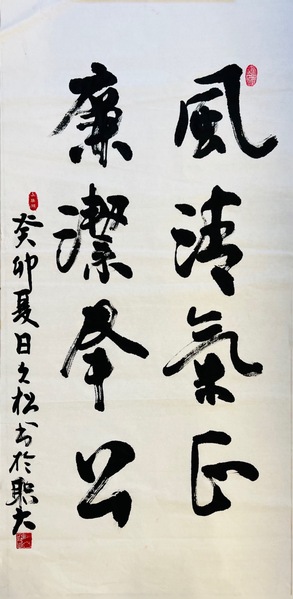 風清氣正
廉潔奉公
癸卯夏日久松書於職大